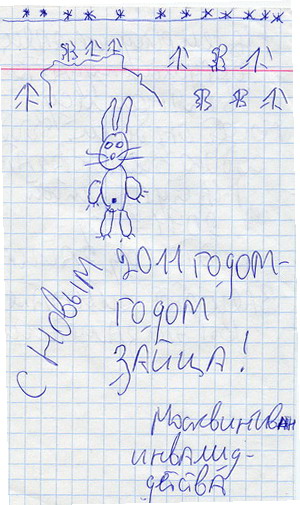 С Новым
2011 годом-
годом
зайца!
Москвин Иван
инвалид-
детства